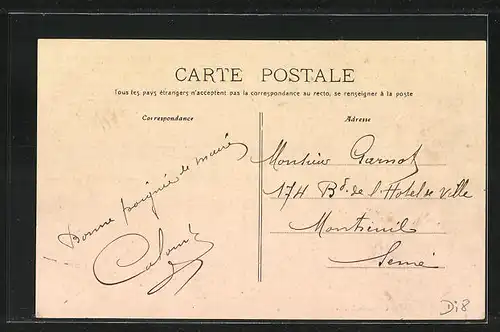 CARTE POSTALE
Tous les pays étrangers n'acceptent pas la correspondance au recto, se renseigner à la poste
Correspondance
Adresse
Bonne poignée de
Monsieur Garnot
174 Bd. de l'Hotel de Ville
Montreuil
Seine
Di8